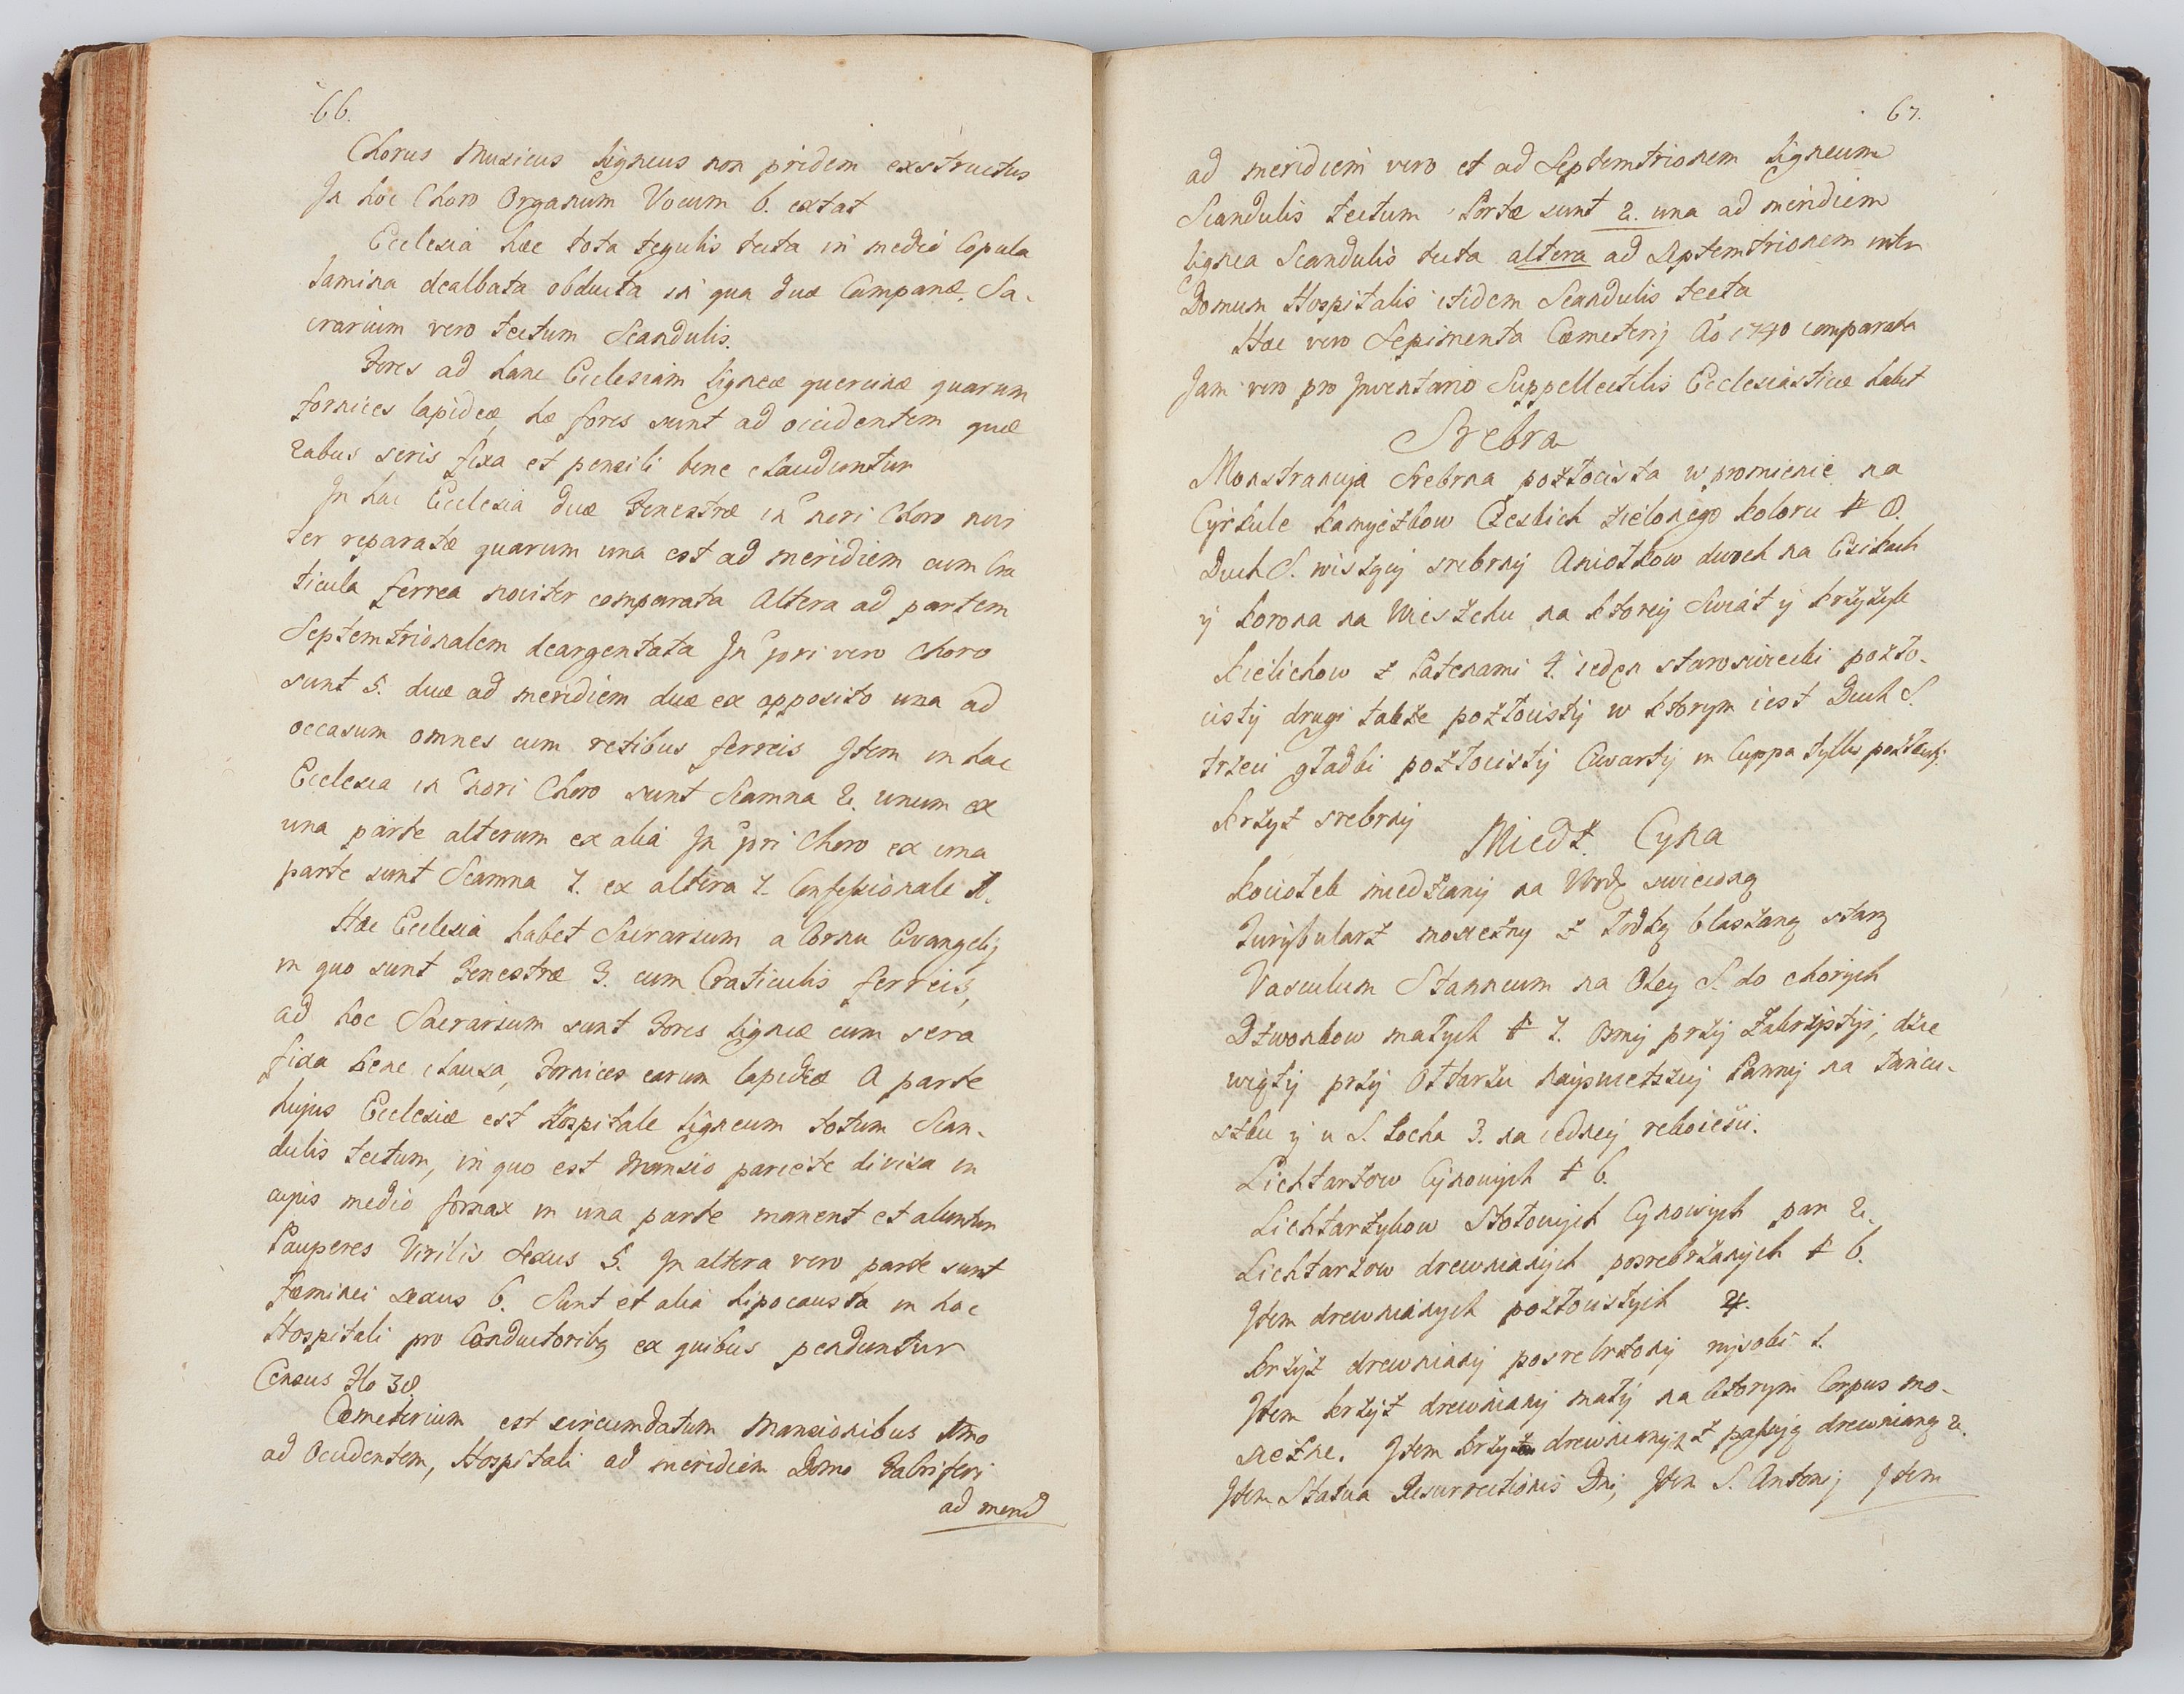 66.
Chorus Musicus ligneus non pridem exstructus
In hoc Choro Organum Vocum 6. extat
Ecclesia haec tota tegulis tecta in medio Copula
lamina dealbata obducta in qua duæ Campanæ, Sa-
crarium vero tectum Scandulis.
Fores ad hanc Ecclesiam ligneæ quercinæ quarum
fornices lapideæ, hæ fores sunt ad occidentem quæ
2abus seris fixa et pensili bene clauduntur
In hac Ecclesia duæ Fenestræ in nori Choro novi
ter reparatæ quarum una est ad meridiem cum Cra
ticula ferrea noviter comparata Altera ad partem
Septemtrionalem deargentata In pori vero Choro
sunt 5. duæ ad meridiem duæ ex opposito una ad
occasum omnes cum retibus ferreis Item in hac
Ecclesia in nori Choro sunt Scamna 2. unum ex
una parte alterum ex alia In pori Choro ex una
parte sunt Scamna 7. ex altera 7. Confessionale 1.
Hæc Ecclesia habet Sacrarium a Cornu Evangelij
in quo sunt Fenestræ 3. cum Craticulis ferreis,
ad hoc Sacrarium sunt Fores ligneæ cum sera
fixa bene clausa, Fornices earum lapideæ A parte
hujus Ecclesiæ est Hospitale ligneum totum Scan-
dulis tectum, in quo est Mansio pariete divisa in
cujus medio fornax in una parte manent et aluntur
Pauperes Virilis Sexus 5. In altera vero parte sunt
Fæminei sexus 6. Sunt et alia hipocausta in hoc
Hospitali pro Conductoribq ex quibus penduntur
Census Flo 38.
Cæmeterium est circumdatum Mansionibus
ad Occidentem, Hospitali ad meridiem Domo
ad merid
67.
ad meridiem vero et ad Septemtrionem ligneum
Scandulis tectum Portæ sunt 2. una ad meridiem
lignea Scandulis tecta altera ad Septemtrionem inter
Domum Hospitalis itidem Scandulis tecta
Hæc vero Sepimenta Cæmeterij Ao 1740 comparata
Jam vero pro Inventario Suppellectilis Ecclesiasticæ habet
Srebra
Monstrancyja Srebrna pozłocista w promienie na
Cyrkule kamyczkow Czeskich zielonego koloru № 8.
Duch S. wiszący srebrny Aniołkow dwoch na Czikach
y korona na Wieszchu na ktorey Swiat y krzyżyk
Kielichow z Patenami 4. ieden staroswiecki pozło-
cisty drugi także pozłocisty w ktorym iest Duch S.
trzeci gładki pozłocisty Cwarty in Cuppa tylko pozłocisty.
Krzyż srebrny
Miedz. Cyna
kociołek miedziany na Wodę swięconą
Turybularz mosiężny z łodką blaszaną starą
Vasculum Stanneum na Oley S. do chorych
Dzwonkow małych № 7. Osmy przy Zakrzystyi, dzie
wiąty przy Ołtarzu Nayswietszey Panny na łancu-
szku y u S. Rocha 3. na iedney rekoieści.
Lichtarzow Cynowych № 6.
Lichtarzykow Stołowych Cynowych par 2.
Lichtarzow drewnianych posrebrzanych № 6.
Item drewnianych pozłocistych 4.
Krzyż drewniany posrebrzony wysoki 1.
Item krzyż drewniany mały na ktorym Corpus mo-
sięzne. Item drewnianych z drewnianą 2.
Item Statua Resurrectionis Dni, Item S. Antonij Item